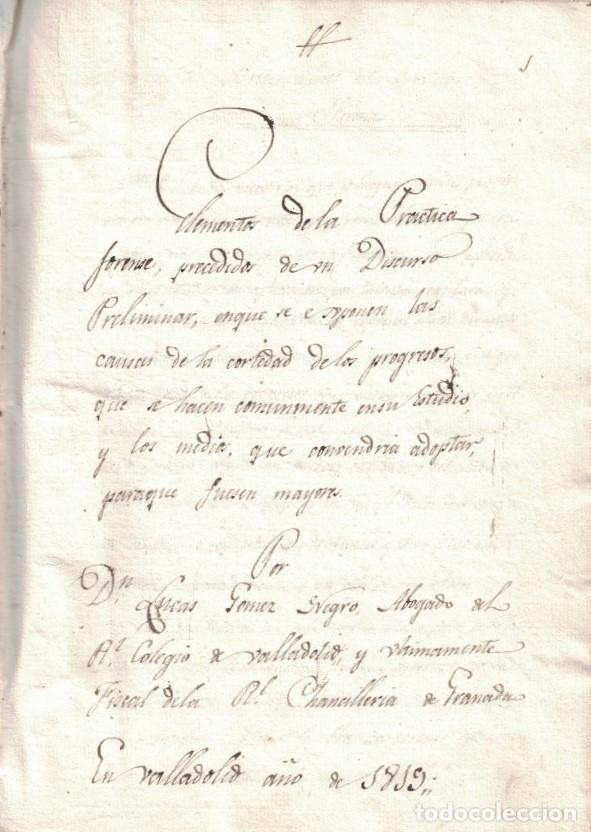 Elementos de la Practica
forense, precedidos de un Discurso
Preliminar, enque se exponen las
causas de la cortedad delos progresos,
que se hacen comunmente ensu Estudio,
y los medios, que convendria adoptar,
paraque fuesen mayores.
Por
Dn Lucas Gomez Negro, Abogado del
Rl. Colegio de Valladolid, y ultimamente
Fiscal dela Rl. Chancilleria de Granada
En Valladolid año de 1819.
todocoleccion